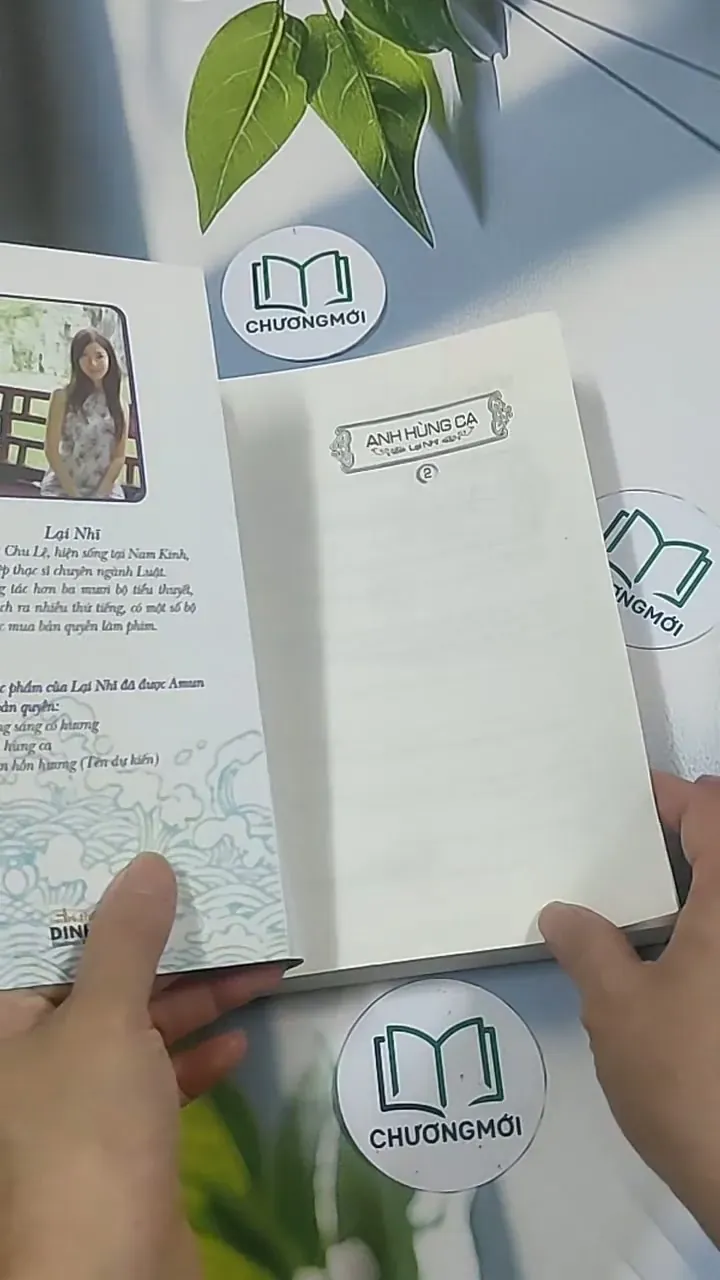 CHƯƠNGMỚI
ANH HÙNG CA
2
Lại Nhĩ
Chu Lệ, hiện sống tại Nam Kinh,
ệp thạc sĩ chuyên ngành Luật.
g tác hơn ba mươi bộ tiểu thuyết,
ch ra nhiều thứ tiếng, có một số bộ
c mua bản quyền làm phim.
c phẩm của Lại Nhĩ đã được Amun
bản quyền:
ng sáng cố hương
hùng ca
n hồn hương (Tên dự kiến)
NGMỚI
DIN
CHƯƠNGMỚI